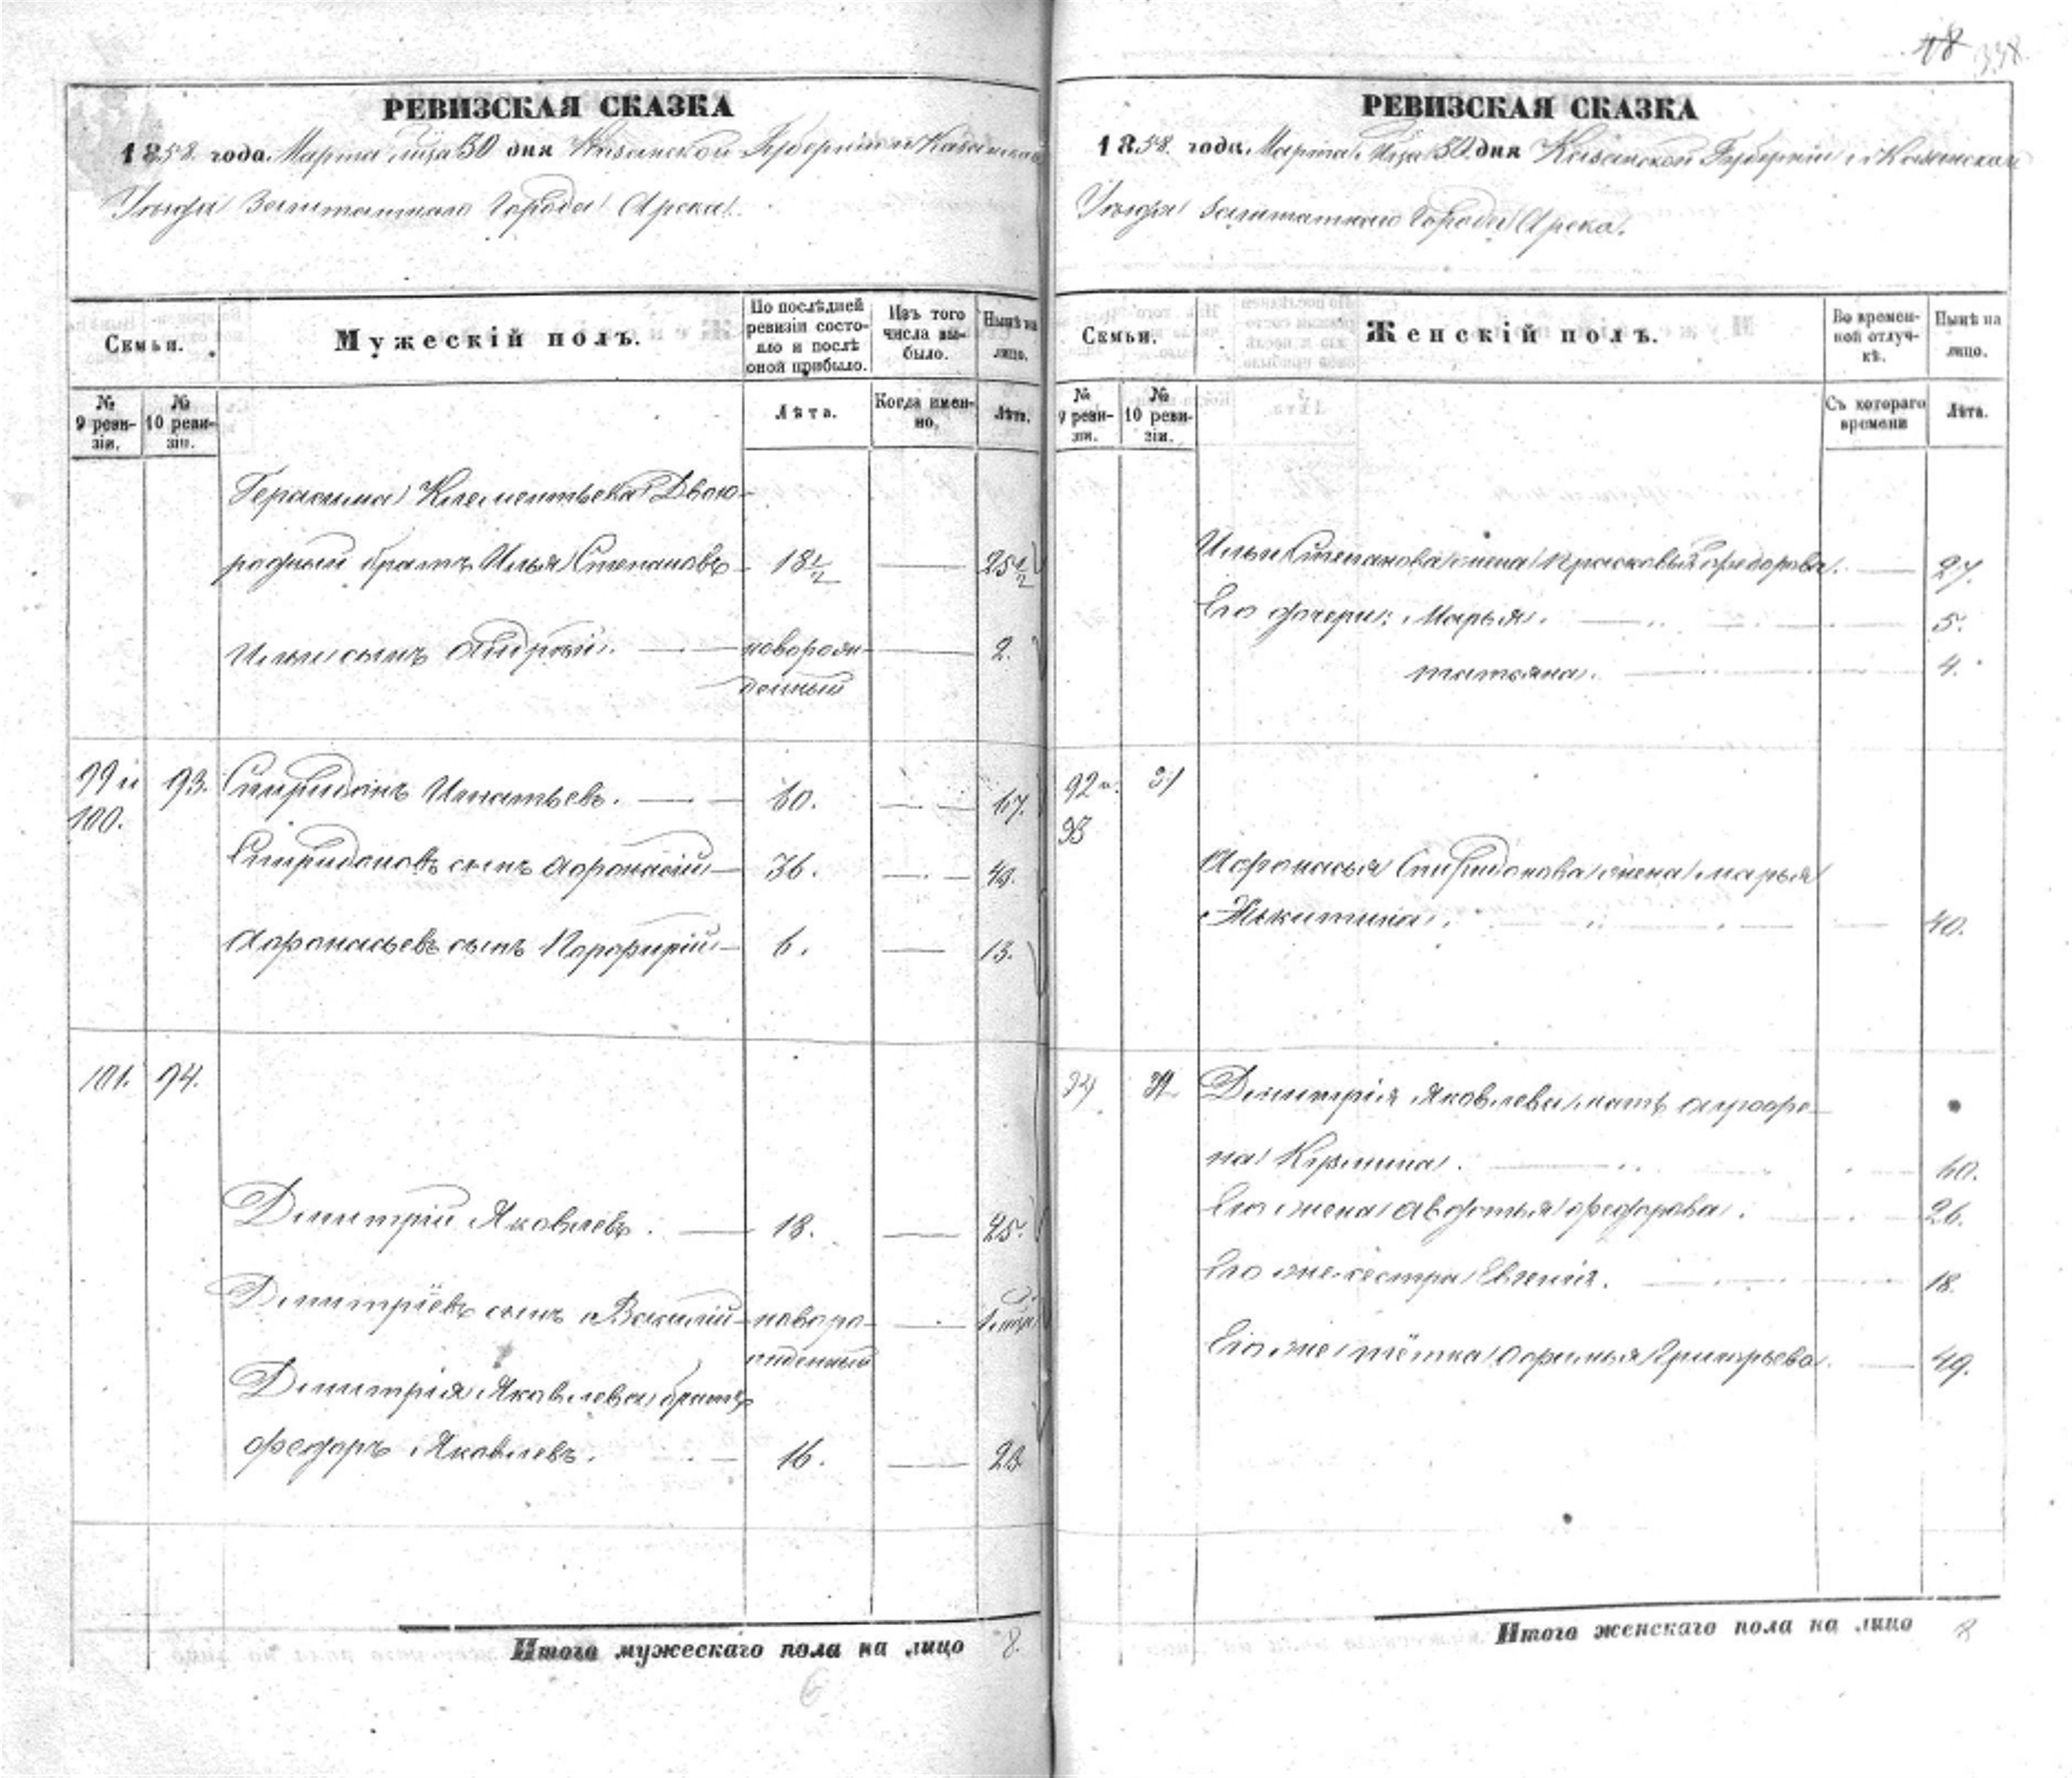 18
РЕВИЗСКАЯ СКАЗКА
1858. года. Марта м̃ца 30 дня Казанской Губерніи и Казанскаго
Уѣзда Заштатнаго Города Арска.
Семьи.
Мужескій полъ.
По послѣдней ревизіи состояло и послѣ оной прибыло.
Изъ того числа выбыло.
Нынѣ на лицо.
№ 9 ревизіи.
№ 10 ревизіи.
Лѣта.
Когда именно.
Лѣта.
Герасима Клементьева Двою-
родный братъ Илья Степановъ 18½ 25½
Ильи сынъ Андрей. новорож- 2.
денный
99 и 93. Спиридонъ Игнатьевъ. 60. 67.
100.
Спиридоновъ сынъ Афонасій 36. 43.
Афонасьевъ сынъ Порфирій 6. 13.
101. 94.
Димитрій Яковлевъ. 18. 25.
Димитріевъ сынъ Василій новоро-
жденный
Димитрія Яковлева братъ
Федоръ Яковлевъ. 16. 23
Итого мужескаго пола на лицо 8.
РЕВИЗСКАЯ СКАЗКА
1858. года. Марта м̃ца 30 дня Казанской Губерніи и Казанскаго
Уѣзда Заштатнаго Города Арска.
Семьи.
Женскій полъ.
Во временной отлучкѣ.
Нынѣ на лицо.
№ 9 ревизіи.
№ 10 ревизіи.
Съ котораго времени
Лѣта.
Ильи Степанова жена Прасковья Федорова. 27.
Его дочери: Марья. 5.
Татьяна. 4.
92 и
93
Афонасья Спиридонова жена Марья
Никитина. 40.
Димитрія Яковлева мать Агрофе-
на Кузмина. 60.
Его жена Авдотья Федорова. 26.
Его же сестра Евгенія. 18.
Его же тётка Афимья Григорьева. 49.
Итого женскаго пола на лицо 8